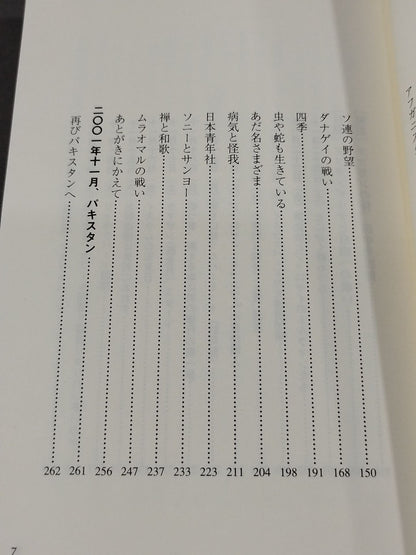 ソ連の野望 150
ダナゲイの戦い 168
四季 191
虫や蛇も生きている 198
あだ名さまざま 204
病気と怪我 211
日本青年社 223
ソニーとサンヨー 233
禅と和歌 237
ムラオマルの戦い 247
あとがきにかえて 256
二〇〇一年十一月、パキスタン 261
再びパキスタンへ 262
7